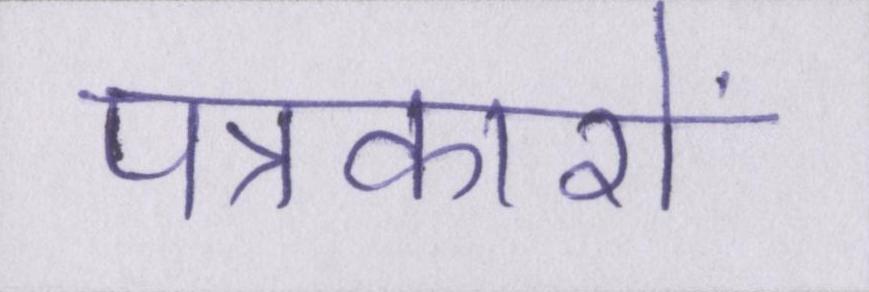 पत्रकारों